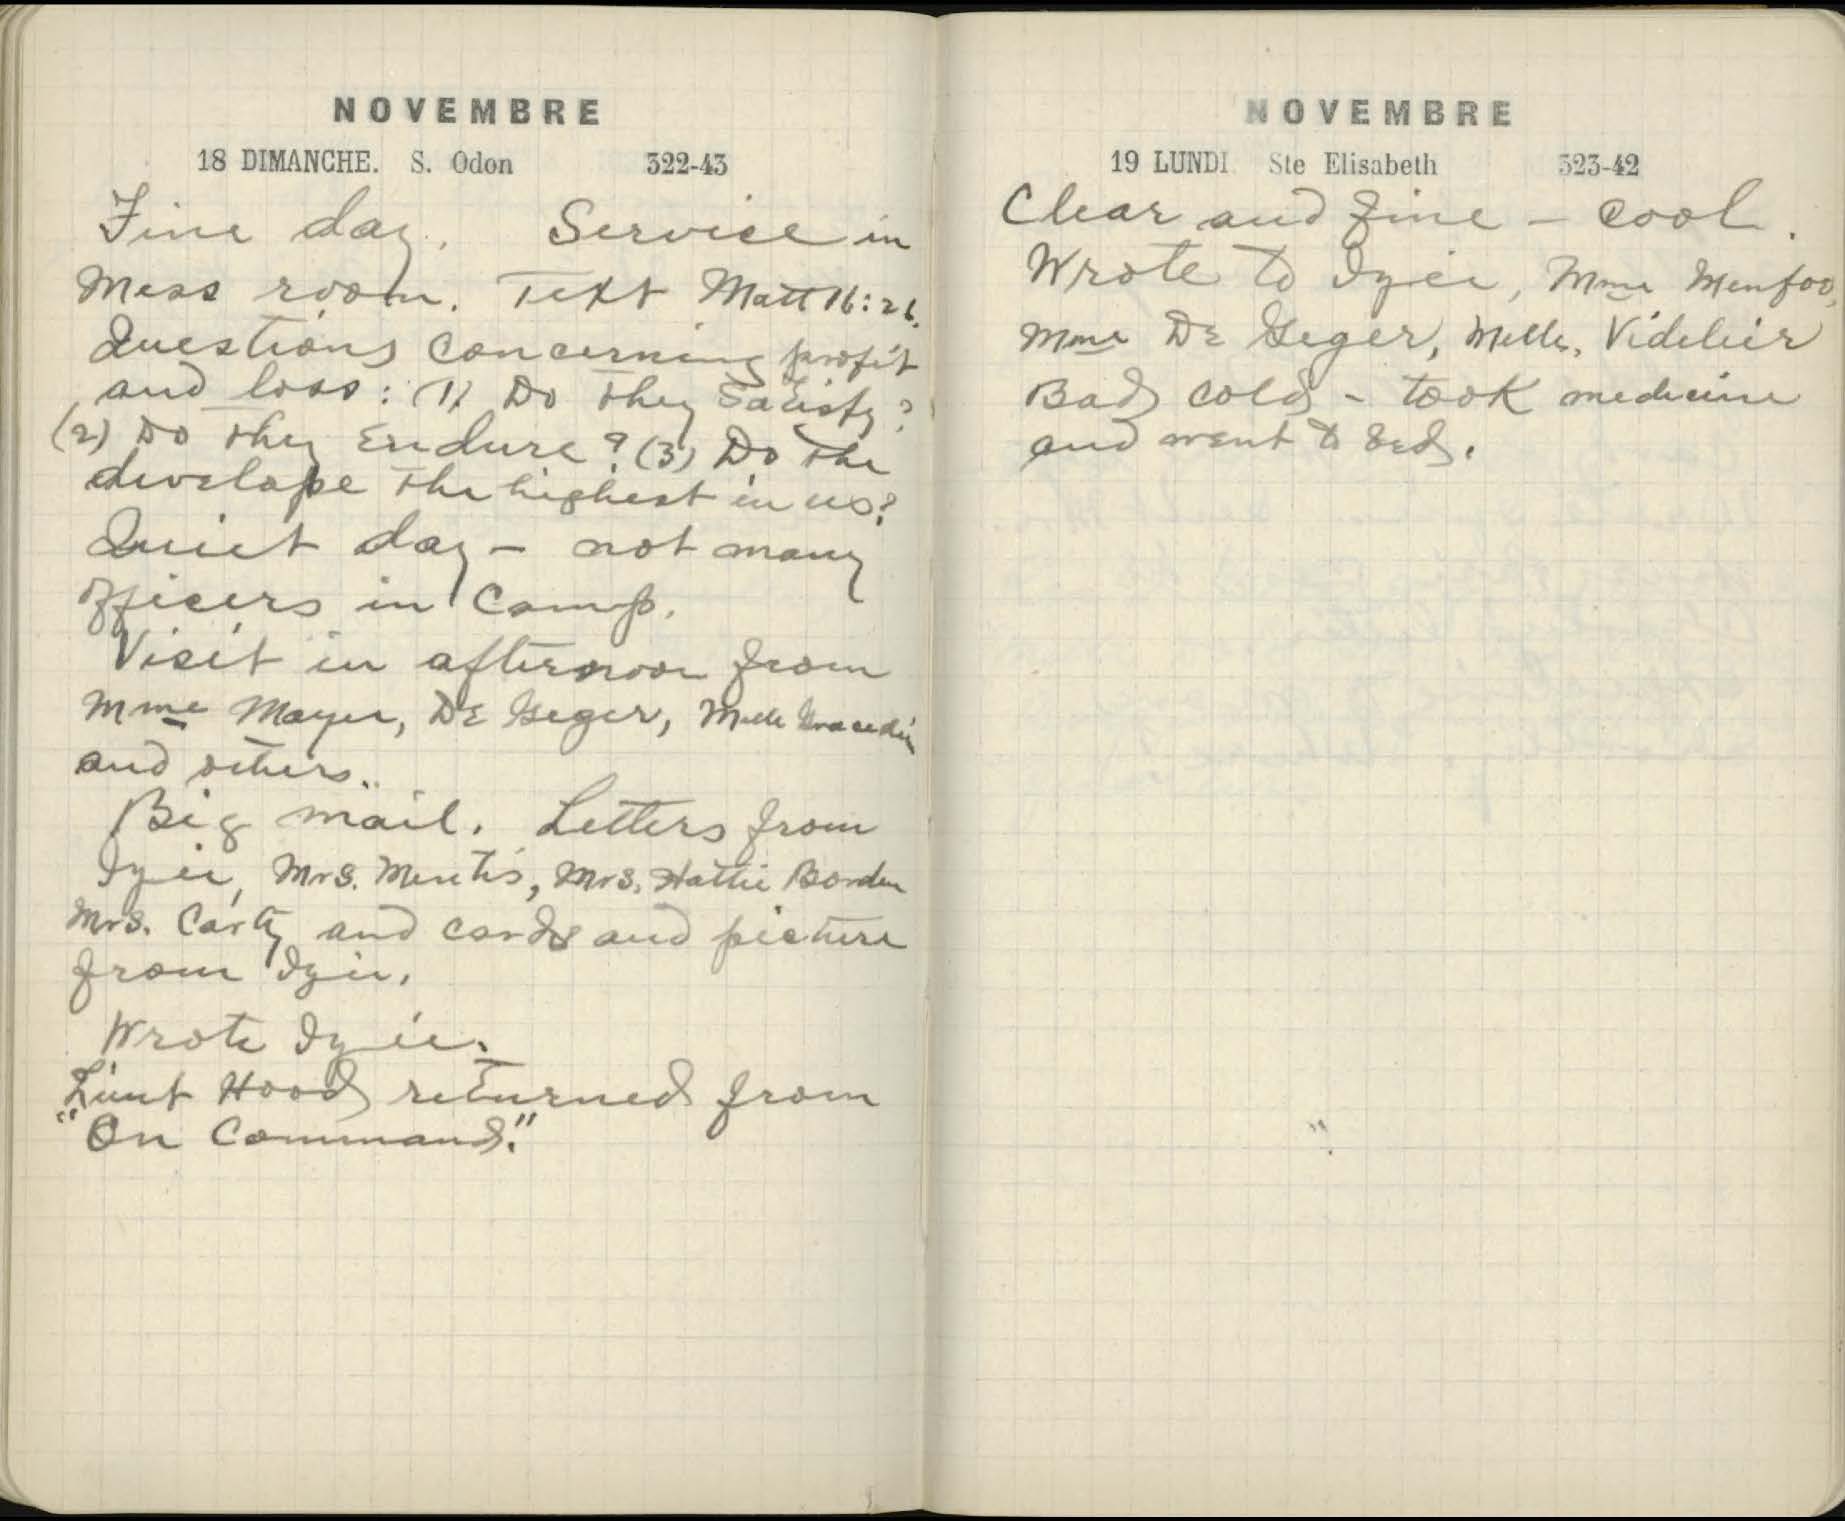 NOVEMBRE
18 DIMANCHE. S. Odon 322-43
Fine day. Service in
Mess room. Text Matt 16:26.
Questions concerning profit
and loss: (1) Do they satisfy?
(2) Do they Endure? (3) Do the
develope the highest in us?
Quiet day – not many
officers in Camp.
Visit in afternoon from
Mme Mayer, De Geger, Melle
and others.
Big mail. Letters from
Izie, Mrs. Mentis, Mrs. Hattie Borden
Mrs. Carty and cards and picture
from Izie.
Wrote Izie.
Lieut Hood returned from
"On Command."
NOVEMBRE
19 LUNDI Ste Elisabeth 323-42
Clear and fine – cool.
Wrote to Izie, Mme
Mme De Geger, Melle. Videlier
Bad cold – took medicine
and went to bed.